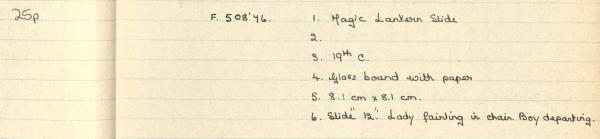 25p F. 508'76. 1. Magic Lantern Slide
2.
3. 19th C.
4. Glass bound with paper
5. 8.1 cm x 8.1 cm.
6. Slide "12". Lady fainting in chair. Boy departing.